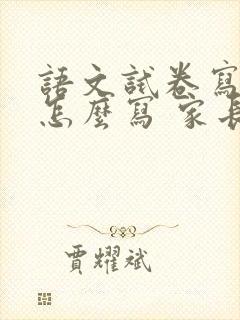 語文試卷寫
怎麼寫 家長
賈耀斌